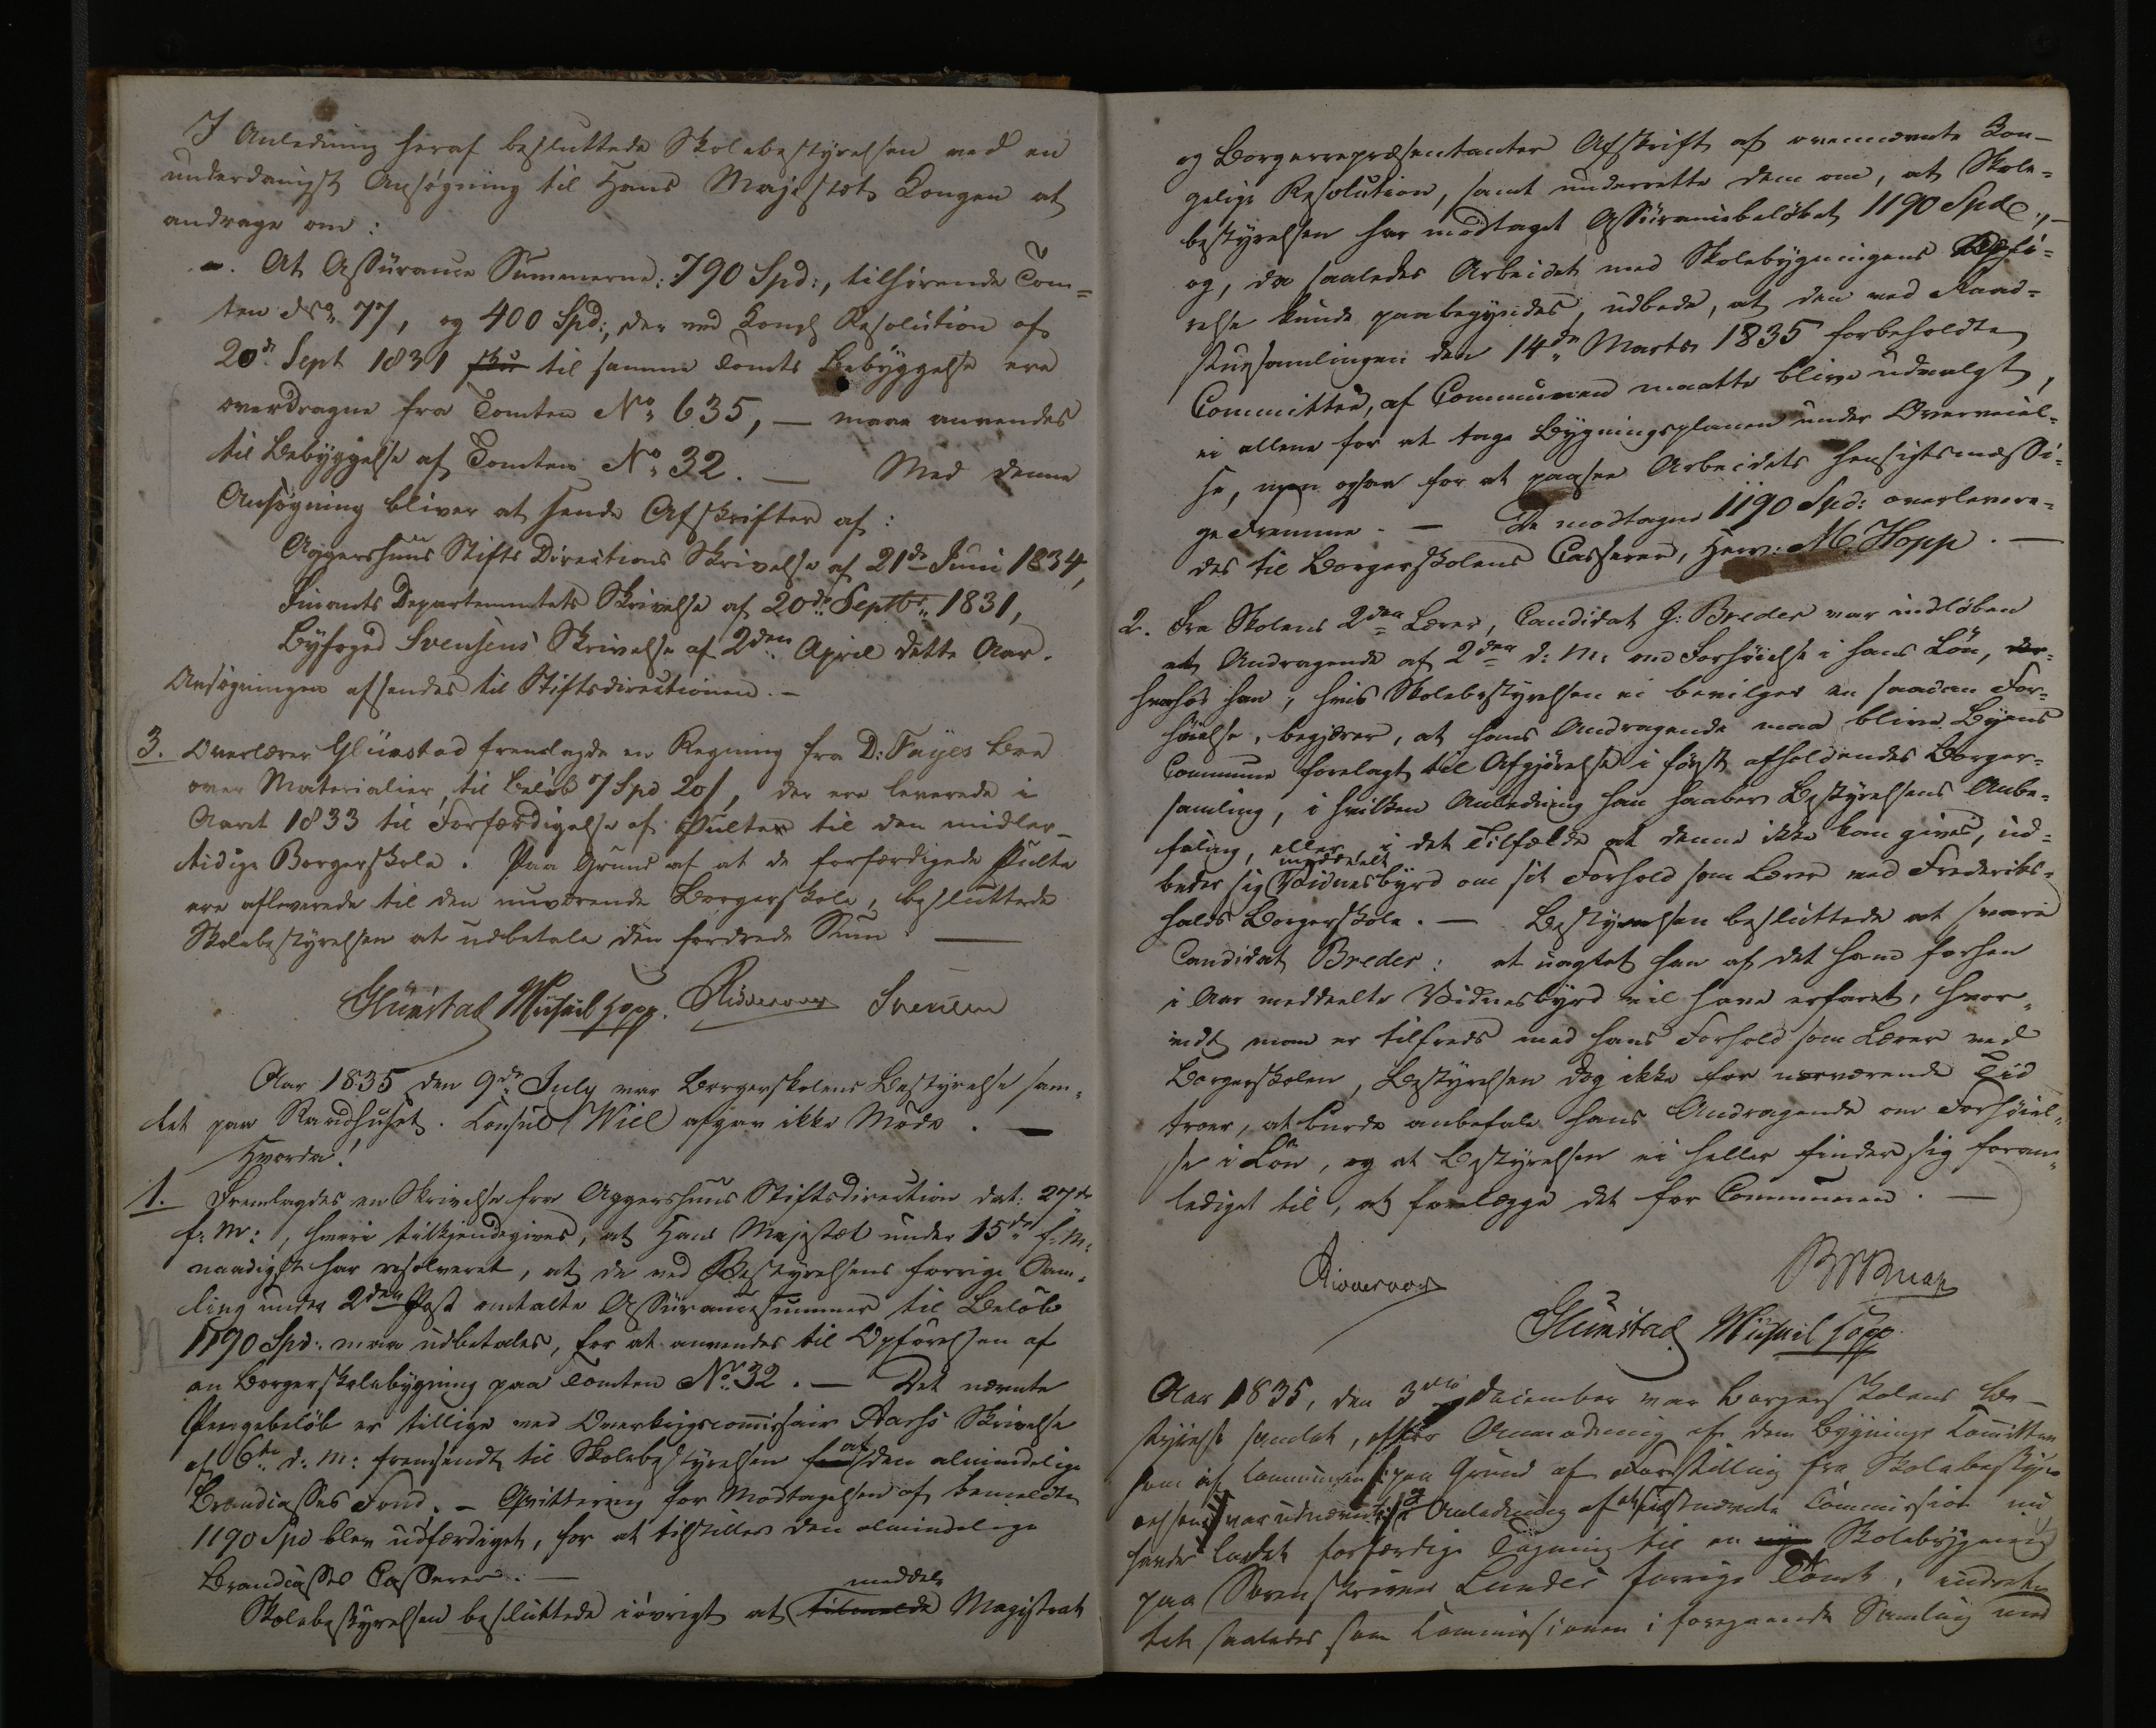 I Anledning heraf besluttede Skolebestyrelsen ved en
underdanigst Ansøgning til Hans Majestæt Kongen at
andrage om:
At Assürance Summerne: 790 Spd:, tilhørende Tom=
ten No 77, og 400 Spd:, der ved Kongl Resolution af
20de Sept 1831 til samme Tomts Bebyggelse ere
overdragne fra Tomten No 635, — maae anvendes
til Bebyggelse af Tomten No 32. — Med denne
Ansøgning bliver at sende Afskrifter af:
Aggershuus Stifts Directions Skrivelse af 21de Juni 1834,
Finants Departementets Skrivelse af 20de Septbr 1831,
Byfoged Svensens Skrivelse af 2den April dette Aar.
Ansøgningen afsendes til Stiftsdirectionen. —
3. Overlærer Glückstad fremlagde en Regning fra D: Fayes Boe
over Materialier, til Beløb 7 Spd 20 s, der ere leverede i
Aaret 1833 til Forfærdigelse af Pulter til den midler-
tidige Borgerskole. Paa Grund af at de forfærdigede Pulte
ere afleverede til den nuværende Borgerskole, besluttede
Skolebestyrelsen at udbetale den fordrede Sum. —
Glückstad Michael Hopp. Svensen
Aar 1835 den 9de July var Borgerskolens Bestyrelse sam-
let paa Raadhuset. Consul Wiel afgav ikke Møde. —
Hvorda!
1. Fremlagdes en Skrivelse fra Aggershuus Stiftsdirection dat: 27de
f: M:, hvori tilkjendegives, at Hans Majestæt under 15de f: M:
naadigst har resolveret, at de ved Bestyrelsens forrige Sam-
ling under 2den Post omtalte Assürancesummer til Beløb
1190 Spd: maae udbetales, for at anvendes til Opførelsen af
en Borgerskolebygning paa Tomten No 32. — Det nævnte
Pengebeløb er tillige ved Overkrigscommissair Aars's Skrivelse
af 6te d: M: fremsendt til Skolebestyrelsen af den almindelige
Brandcasses Fond. — Qvittering for Modtagelsen af bemeldte
1190 Spd blev udfærdiget, for at tilstilles den almindelige
Brandcasses Casserer. —
Skolebestyrelsen besluttede iøvrigt at meddele Magistrat
og Borgerrepræsentanter Afskrift af ovennævnte Kon-
gelige Resolution, samt underrette dem om, at Skole=
bestyrelsen har modtaget Assürancebeløbet 1190 Spd., —
og, da saaledes Arbeidet med Skolebygningens Opfø=
relse kunde paabegyndes, udbede, at den ved Raad=
stuesamlingen den 14de Marts 1835 forbeholdte
Committee, af Communen maatte blive udvalgt,
ei allene for at tage Bygningsplanen under Overveiel=
se, men ogsaa for at paasee Arbeidets hensigtsmæssi=
ge Fremme. — De modtagne 1190 Spd: overlevere=
des til Borgerskolens Casserer, Herr: M. Hopp. —
2. Fra Skolens 2den Lærer, Candidat J: Breder var indløben
et Andragende af 2den d: M: om Forhøielse i hans Løn,
hvorhos han, hvis Skolebestyrelsen ei bevilger en saadan For=
høielse, begjærer, at hans Andragende maa blive Byens
Commune forelagt til Afgjørelse i først afholdendes Borger=
samling, i hvilken Anledning han haaber Bestyrelsens Anbe=
faling, eller i det Tilfælde at denne ikke kan gives, ud=
beder sig meddeelt Vidnesbyrd om sit Forhold som Lærer ved Frederiks=
halds Borgerskole. — Bestyrelsen besluttede at svare
Candidat Breder: at uagtet han af det ham forhen
i Aar meddeelte Vidnesbyrd vil have erfaret, hvor-
vidt man er tilfreds med hans Forhold som Lærer ved
Borgerskolen, Bestyrelsen dog ikke for nærværende Tid
troer, at burde anbefale hans Andragende om Forhøiel-
se i Løn, og at Bestyrelsen ei heller finder sig foran-
lediget til, at forelægge det for Communen. —
Glückstad Michael Hopp
Aar 1835, den 3die December var Borgerskolens Be-
styrelse samlet, efter Anmodning af den Bygnings Comittee
som af Communen paa Grund af Forestilling fra Skolebesty-
relsen var udnævnt, og i Anledning af at sidstnævnte Commission nu
havde ladet forfærdige Tegning til en Skolebygning
paa Sorenskriver Lundes forrige Tomt, indret-
tet saaledes som Commissionen i foregaaende Samling med